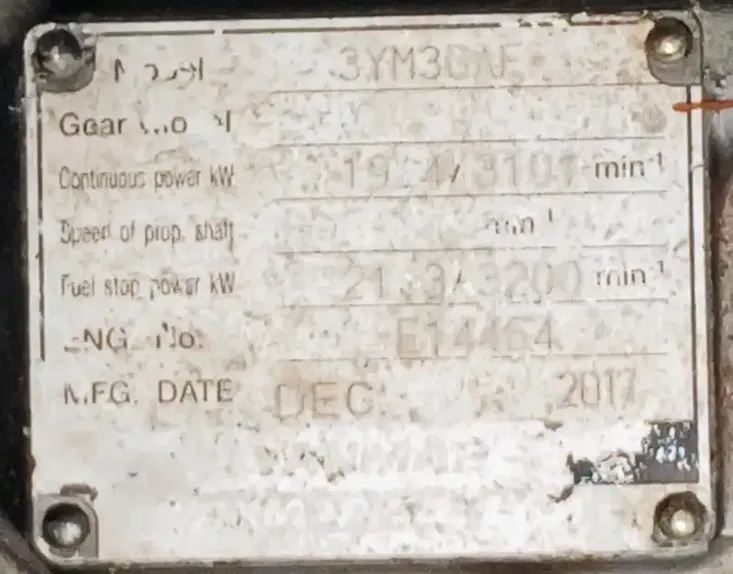 Model 3YM30AE
Gear Model
Continuous power kW 19.4/3101 min-1
Speed of prop. shaft min-1
Fuel stop power kW 21.3/3200 min-1
ENG. No. E14464
MFG. DATE DEC. 2017
YANMAR